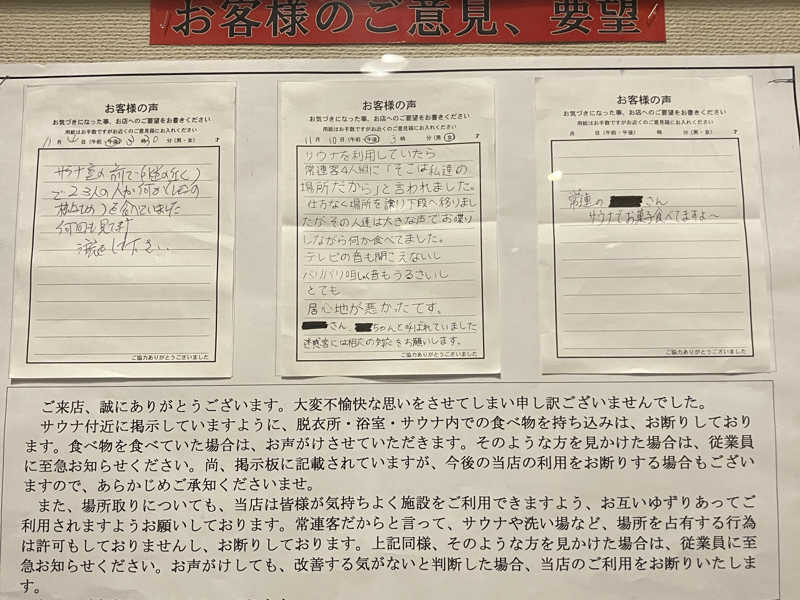 お客様のご意見、要望
お客様の声
お気づきになった事、お店へのご要望をお書きください
用紙はお手数ですがお近くのご意見箱にお入れください
11月 日(午前・午後) 3時 0分(男・女) 才
サウナ室の前で
で2 3人の人が何か
を食べていました
何回も見てます
注意して下さい
ご協力ありがとうございました
お客様の声
お気づきになった事、お店へのご要望をお書きください
用紙はお手数ですがお近くのご意見箱にお入れください
11月 10日(午前・午後) 3時 分(男・女) 才
サウナを利用していたら
常連客4人組に「そこは私達の
場所だから」と言われました。
仕方なく場所を譲り下段へ移りまし
たが、その人達は大きな声でお喋り
しながら何か食べてました。
テレビの音も聞こえないし
バリバリ咀しゃく音もうるさいし
とても
居心地が悪かったです。
さん、 ちゃんと呼ばれていました
迷惑客には相応の対応をお願いします。
ご協力ありがとうございました
お客様の声
お気づきになった事、お店へのご要望をお書きください
用紙はお手数ですがお近くのご意見箱にお入れください
月 日(午前・午後) 時 分(男・女) 才
常連の さん
サウナでお菓子食べてますよ～
ご協力ありがとうございました
ご来店、誠にありがとうございます。大変不愉快な思いをさせてしまい申し訳ございませんでした。
サウナ付近に掲示していますように、脱衣所・浴室・サウナ内での食べ物を持ち込みは、お断りしており
ます。食べ物を食べていた場合は、お声がけさせていただきます。そのような方を見かけた場合は、従業員
に至急お知らせください。尚、掲示板に記載されていますが、今後の当店の利用をお断りする場合もござい
ますので、あらかじめご承知くださいませ。
また、場所取りについても、当店は皆様が気持ちよく施設をご利用できますよう、お互いゆずりあってご
利用されますようお願いしております。常連客だからと言って、サウナや洗い場など、場所を占有する行為
は許可もしておりませんし、お断りしております。上記同様、そのような方を見かけた場合は、従業員に至
急お知らせください。お声がけしても、改善する気がないと判断した場合、当店のご利用をお断りいたしま
す。